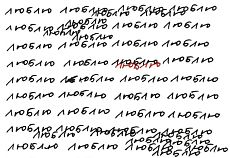 люблю люблю люблю люблю
люблю люблю
люблю люблю люблю люблю
люблю
люблю
люблю люблю люблю люблю
люблю люблю люблю люблю
люблю
люблю люблю люблю люблю
люблю люблю люблю люблю
люблю люблю люблю люблю
люблю люблю люблю люблю
люблю люблю люблю люблю
люблю люблю люблю
люблю люблю люблю люблю
люблю